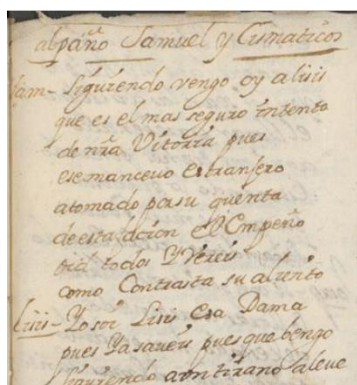 al paño Samuel y Cismaticos
Sam - Siguiendo vengo oy a lisis
que es el mas seguro intento
de nrã Vitoria pues
ese mancevo estranjero
a tomado por su quenta
de esta acion el Empeño
oid todos Y Vereis
como Contrasta su aliento
Lisis - Yo soi Lisis Esa Dama
pues Ya saveis pues que bengo
 a un tirano aleve